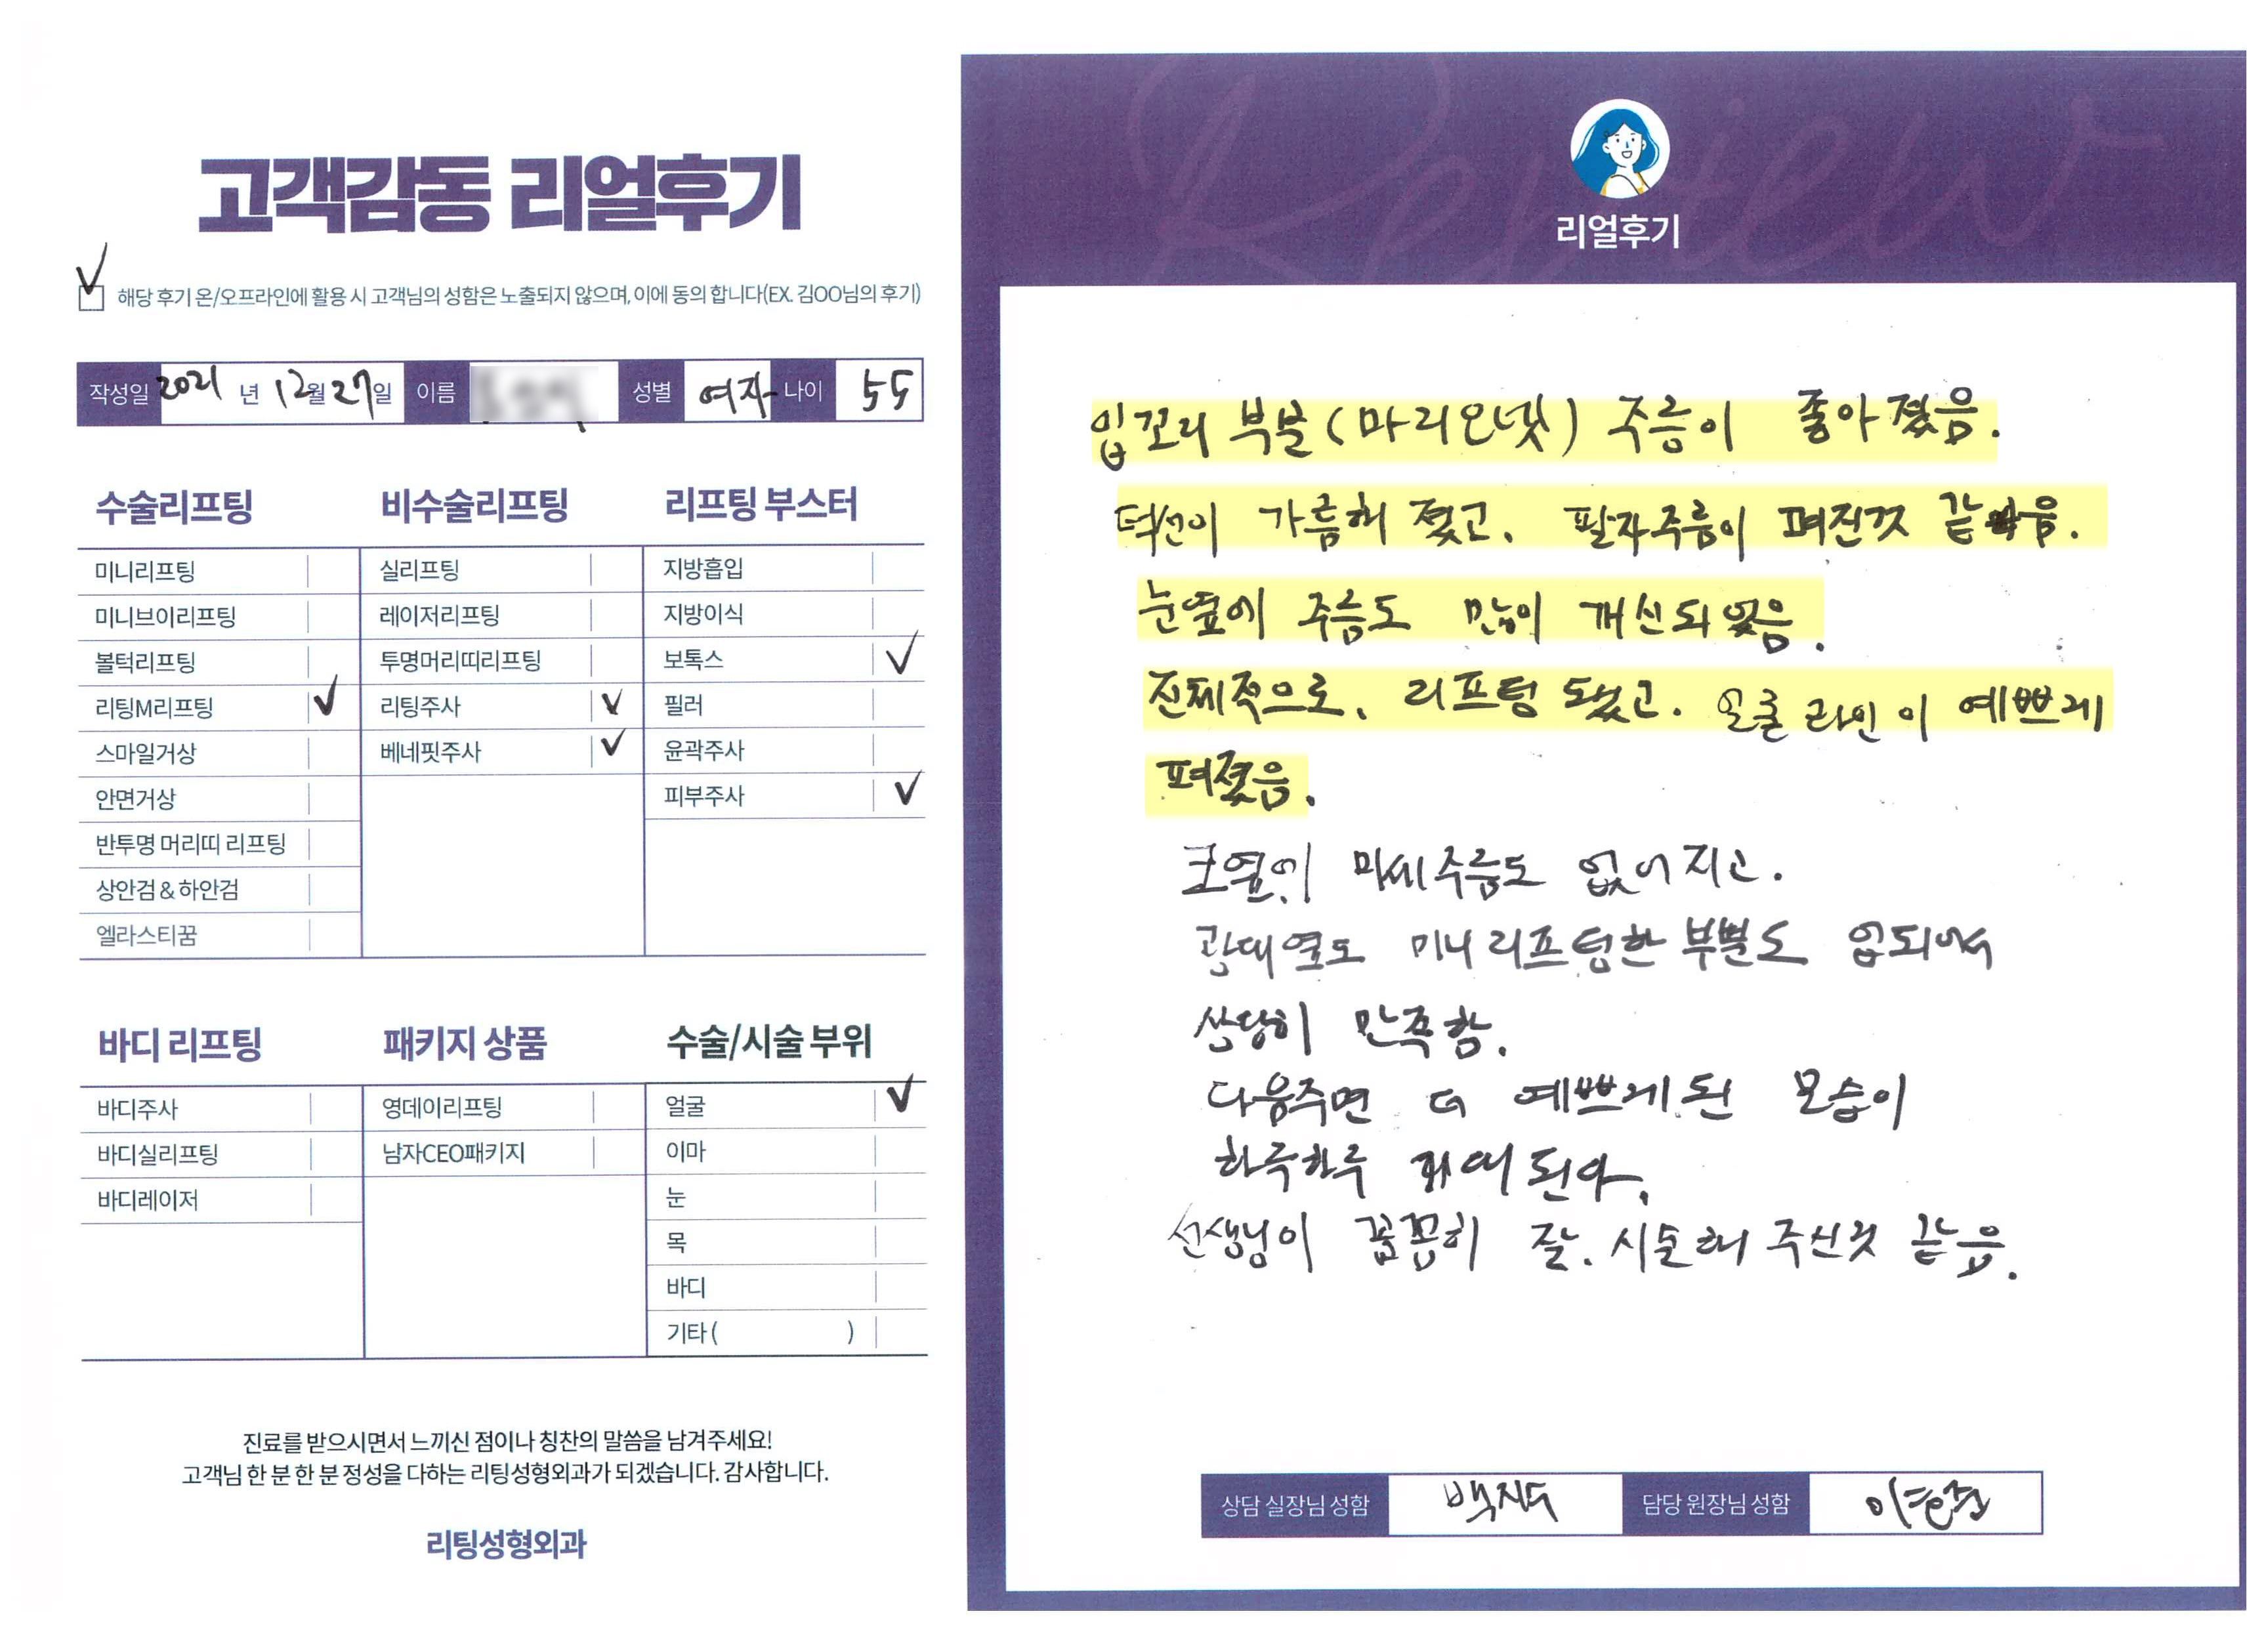 고객감동 리얼후기
해당 후기 온/오프라인에 활용 시 고객님의 성함은 노출되지 않으며, 이에 동의 합니다(EX. 김OO님의 후기)
작성일 2021 년 12월 27일 이름 성별 여자 나이 55
수술리프팅
미니리프팅
미니브이리프팅
볼턱리프팅
리팅M리프팅 ✓
스마일거상
안면거상
반투명 머리띠 리프팅
상안검 & 하안검
엘라스티꿈
비수술리프팅
실리프팅
레이저리프팅
투명머리띠리프팅
리팅주사 ✓
베네핏주사 ✓
리프팅 부스터
지방흡입
지방이식
보톡스 ✓
필러
윤곽주사
피부주사 ✓
바디 리프팅
바디주사
바디실리프팅
바디레이저
패키지 상품
영데이리프팅
남자CEO패키지
수술/시술 부위
얼굴 ✓
이마
눈
목
바디
기타 ( )
진료를 받으시면서 느끼신 점이나 칭찬의 말씀을 남겨주세요!
고객님 한 분 한 분 정성을 다하는 리팅성형외과가 되겠습니다. 감사합니다.
리팅성형외과
Review
리얼후기
입꼬리 부분(마리오넷) 주름이 좋아졌음.
턱선이 가름해 졌고, 팔자주름이 펴진것 같음.
눈옆에 주름도 많이 개선되었음.
전체적으로, 리프팅 됐고. 얼굴 라인이 예쁘게
펴졌음.
코옆에 미세주름도 없어지고.
광대옆도 미니리프팅한 부분도 업되어서
상당히 만족함.
다음주면 더 예쁘게된 모습이
하루하루 된다.
선생님이 꼼꼼히 잘. 시술해 주신것 같음.
상담 실장님 성함
담당 원장님 성함